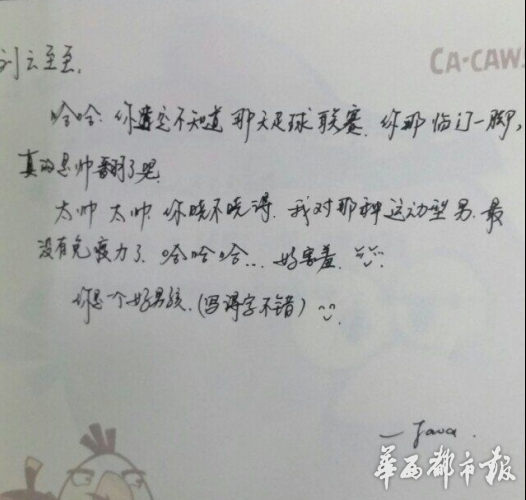 刘云至至,
CA-CAW.
哈哈. 你肯定不知道那天足球联赛. 你那临门一脚,
真的是帅翻了哭.
太帅太帅. 你晓不晓得. 我对那种运动型男. 最
没有免疫力了. 哈哈哈... 好害羞.
你是个好男孩. (写得字不错)
— Java.
华西都市报